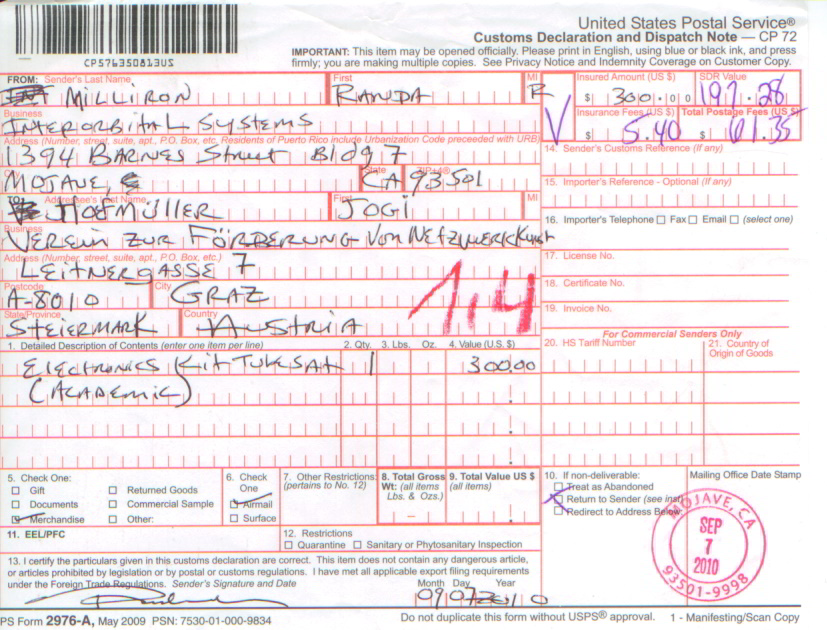 United States Postal Service®
Customs Declaration and Dispatch Note — CP 72
IMPORTANT: This item may be opened officially. Please print in English, using blue or black ink, and press
firmly; you are making multiple copies. See Privacy Notice and Indemnity Coverage on Customer Copy.
CP576350813US
FROM: Sender's Last Name First MI
MILLIRON RANDA R
Insured Amount (US $) SDR Value
$ 300.00 197.28
Business
INTERORBITAL SYSTEMS
Insurance Fees (US $) Total Postage Fees (US $)
$ 5.40 $ 61.35
Address (Number, street, suite, apt., P.O. Box, etc. Residents of Puerto Rico include Urbanization Code preceeded with URB)
1394 BARNES Street Bldg 7
14. Sender's Customs Reference (if any)
State ZIP+4®
MOJAVE, CA 93501
15. Importer's Reference - Optional (if any)
TO: Addressee's Last Name First MI
HOFMÜLLER JOGI
16. Importer's Telephone Fax Email (select one)
Business
VEREIN ZUR FÖRDERUNG VON NETZWERKKUNST
Address (Number, street, suite, apt., P.O. Box, etc.)
LEITNERGASSE 7
17. License No.
Postcode City
A-8010 GRAZ
18. Certificate No.
State/Province Country
STEIERMARK AUSTRIA
19. Invoice No.
1.4
For Commercial Senders Only
1. Detailed Description of Contents (enter one item per line) 2. Qty. 3. Lbs. Oz. 4. Value (U.S. $)
20. HS Tariff Number 21. Country of Origin of Goods
ELECTRONICS KIT TUBESAT 1 300.00
(ACADEMIC)
5. Check One:
Gift Returned Goods
Documents Commercial Sample
Merchandise Other:
6. Check One
Airmail
Surface
7. Other Restrictions
(pertains to No. 12)
8. Total Gross
Wt: (all items
Lbs. & Ozs.)
9. Total Value US $
(all items)
10. If non-deliverable:
Treat as Abandoned
Return to Sender (see inst
Redirect to Address Below:
Mailing Office Date Stamp
MOJAVE, CA
SEP
7
2010
93501-9998
11. EEL/PFC
12. Restrictions
Quarantine Sanitary or Phytosanitary Inspection
13. I certify the particulars given in this customs declaration are correct. This item does not contain any dangerous article,
or articles prohibited by legislation or by postal or customs regulations. I have met all applicable export filing requirements
under the Foreign Trade Regulations. Sender's Signature and Date
Month Day Year
09 07 2010
PS Form 2976-A, May 2009 PSN: 7530-01-000-9834
Do not duplicate this form without USPS® approval. 1 - Manifesting/Scan Copy